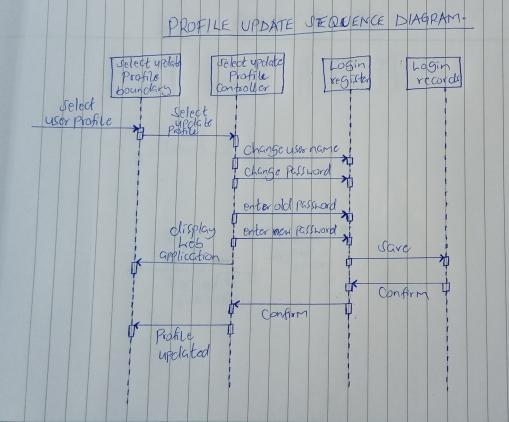 PROFILE UPDATE SEQUENCE DIAGRAM.
Select update
Profile
boundary
Select update
Profile
Controller
Login
register
Login
records
Select
user Profile
Select
update
Profile
Change username
Change Password
enter old Password
enter new Password
display
web
application
Save
Confirm
Confirm
Profile
updated